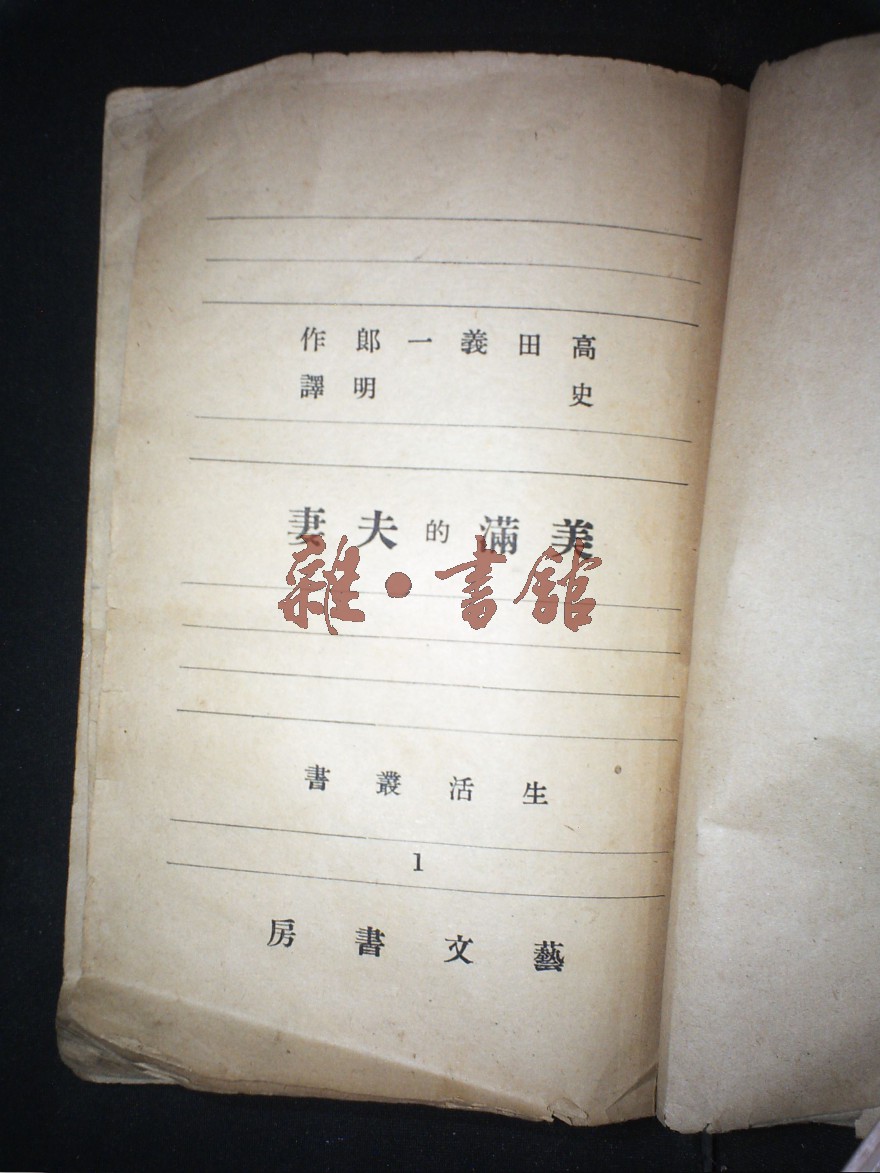 高田義一郎作
史明譯
美滿的夫妻
雜·書館
生活叢書
1
藝文書房